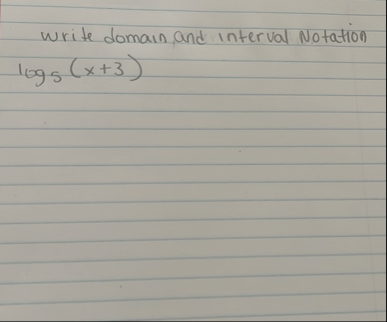 write domain and interval Notation
log₅ (x+3)